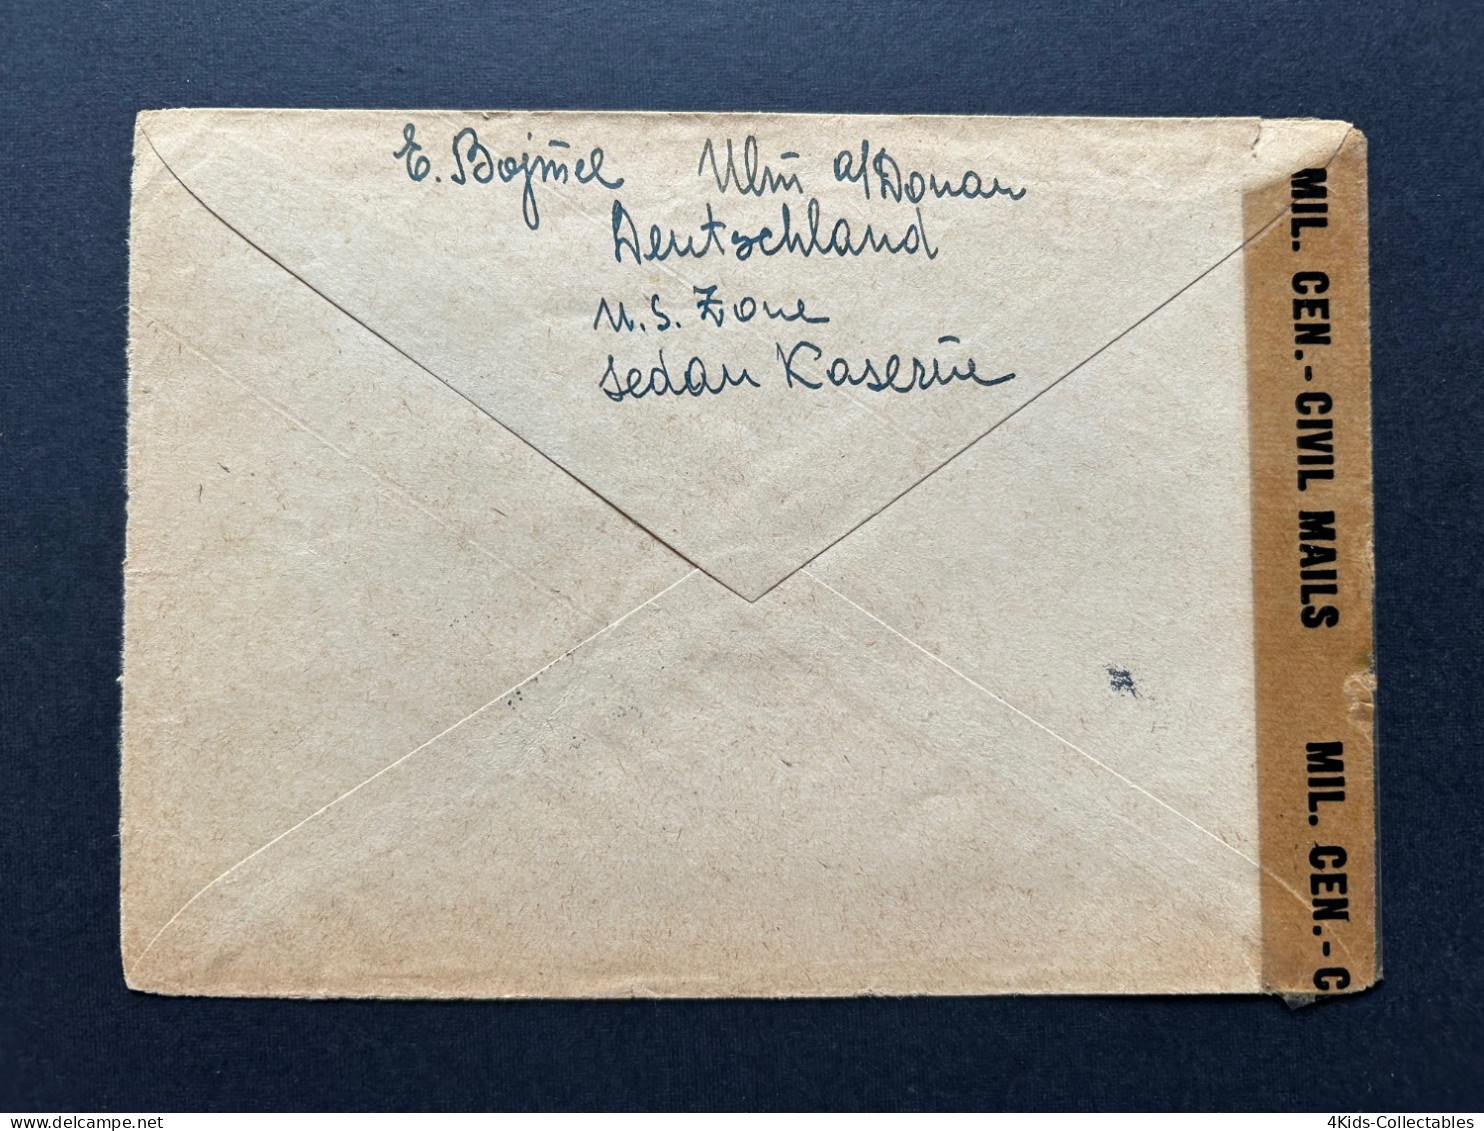 E. Bojmel Ulm a/Donau
Deutschland
U.S. Zone
Sedan Kaserne
MIL. CEN.-CIVIL MAILS MIL. CEN.-C
delcampe.net
4Kids-Collectables